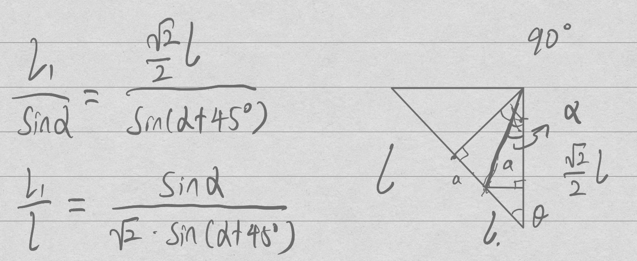 l₁/sinα = (√2/2 l)/sin(α+45°)
l₁/l = sinα/(√2 · sin(α+45°))
90°
α
a
a
√2/2 l
l
l.
θ